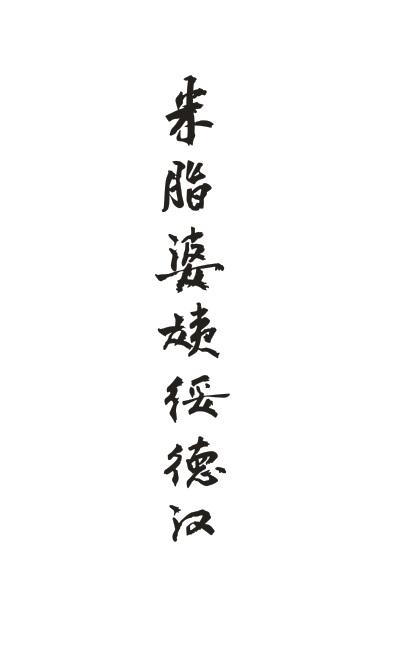 米脂婆姨绥德汉